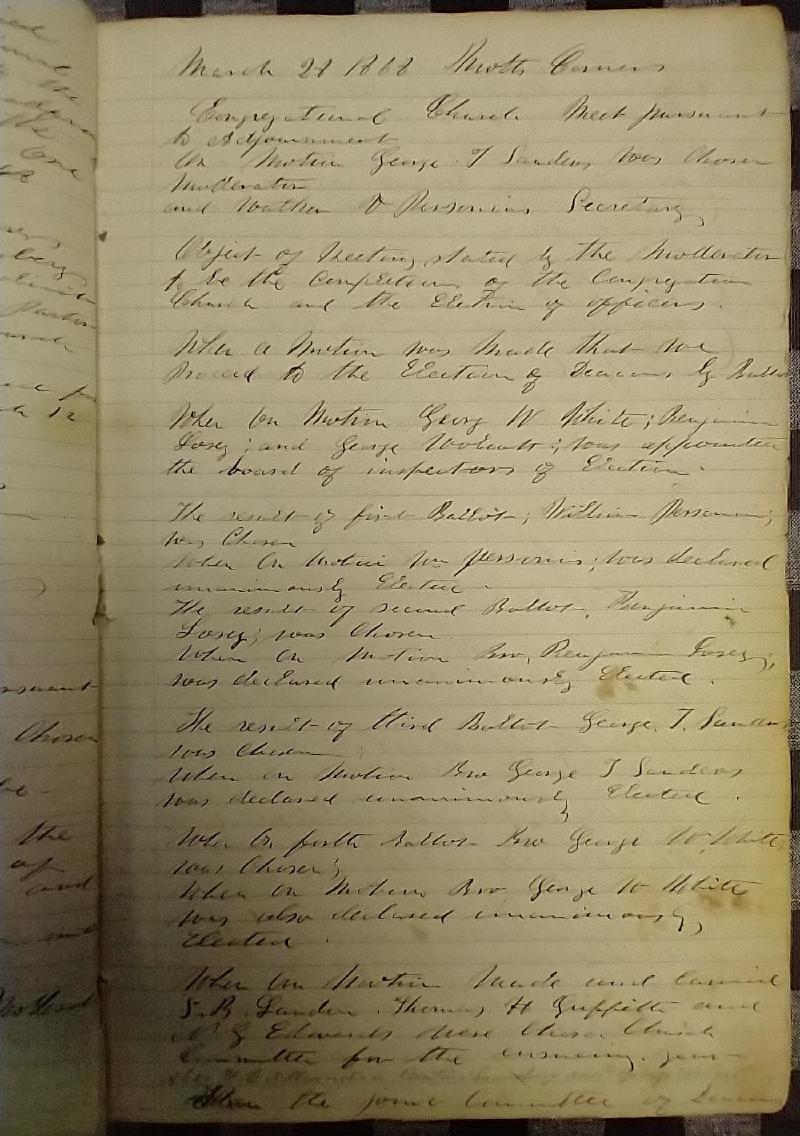 March 28 1868 Motts Corners
Congregational Church Meet pursuant
to Adjournment
On Motion George T Sanders was Chosen
Moderator
and Walther D Personius Secretary
Object of Meeting stated by the Moderator
to be the Completion of the Congregation
Church and the Election of officers.
When a Motion was Made that we
Proceed to the Election of Deacons by Ballot
When On Motion Georg W White; Benjamin
Losey; and George Wolcott; was appointed
the board of inspectors of Election.
The result of first Ballot; William Personius;
was Chosen
When On Motion Wm Personius; was declared
unanimously Elected.
The result of second Ballot, Benjamin
Losey; was Chosen
When On Motion Bro, Benjamin Losey;
was declared unanimously Elected.
The result of third Ballot George, T. Sanders
was Chosen
When on Motion Bro George T Sanders
was declared unanimously Elected.
When On forth Ballot Bro George W. White
was Chosen;
When On Motion Bro George W White
was also declared unanimously,
Elected.
When On Motion Made and Carried
S. B. Landon. Thomas H Griffith and
Edwards were Chosen Church
Committee for the ensuing year
the joint Committee of Deacons